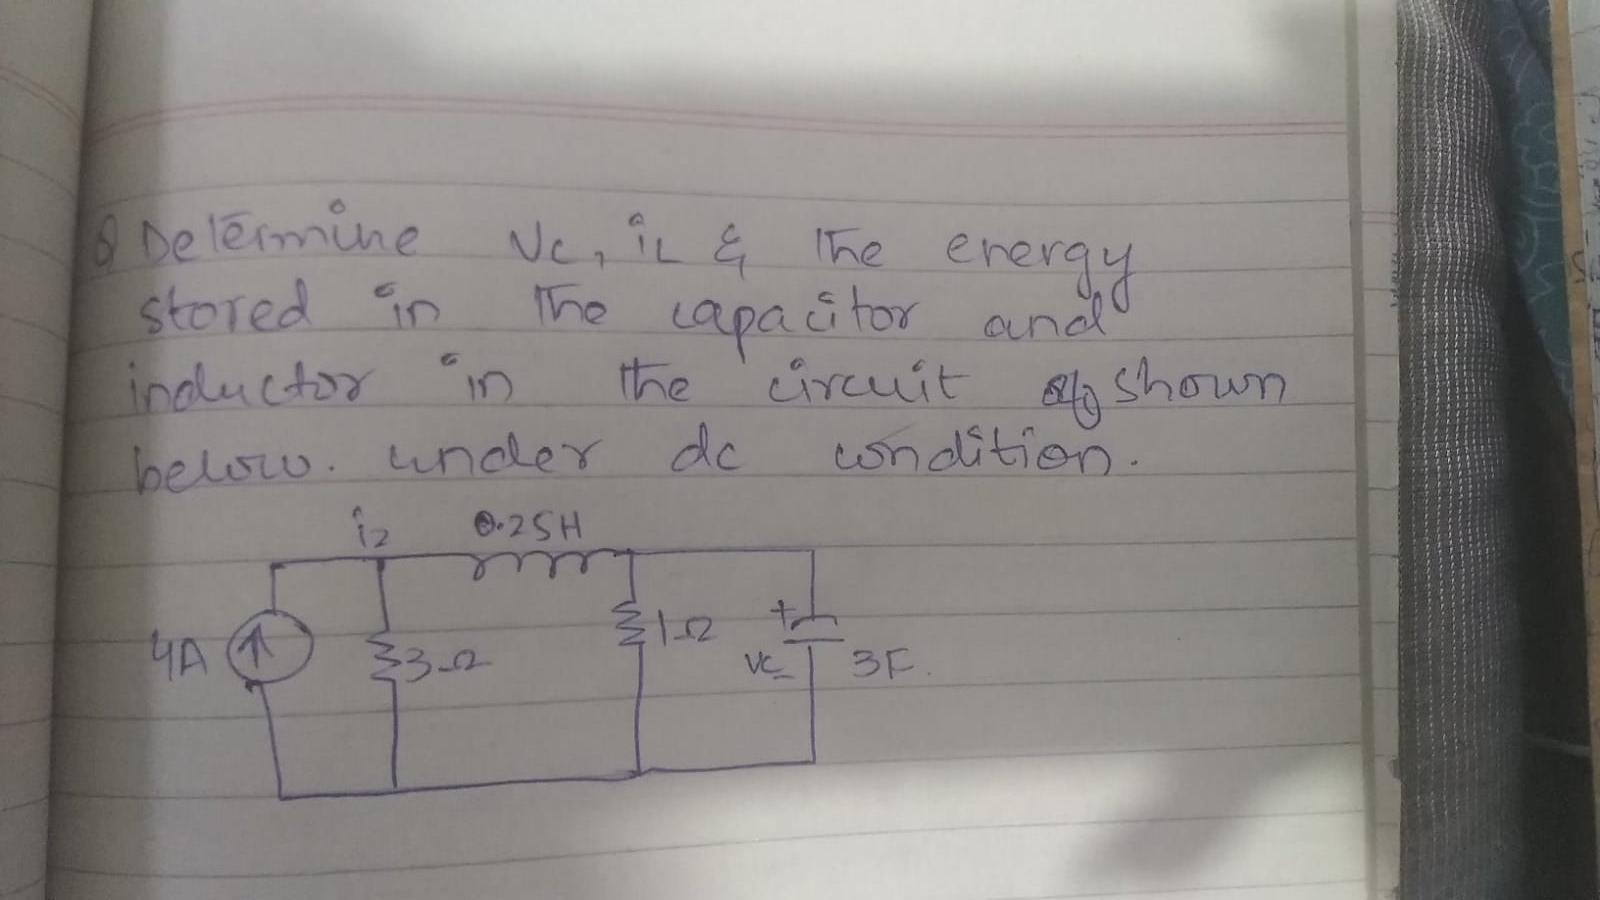 Q Determine Vc, iL & the energy
stored in the capacitor and
inductor in the circuit shown
below. under dc condition.
i2 0.25H
4A 3Ω 1Ω + Vc - 3F.